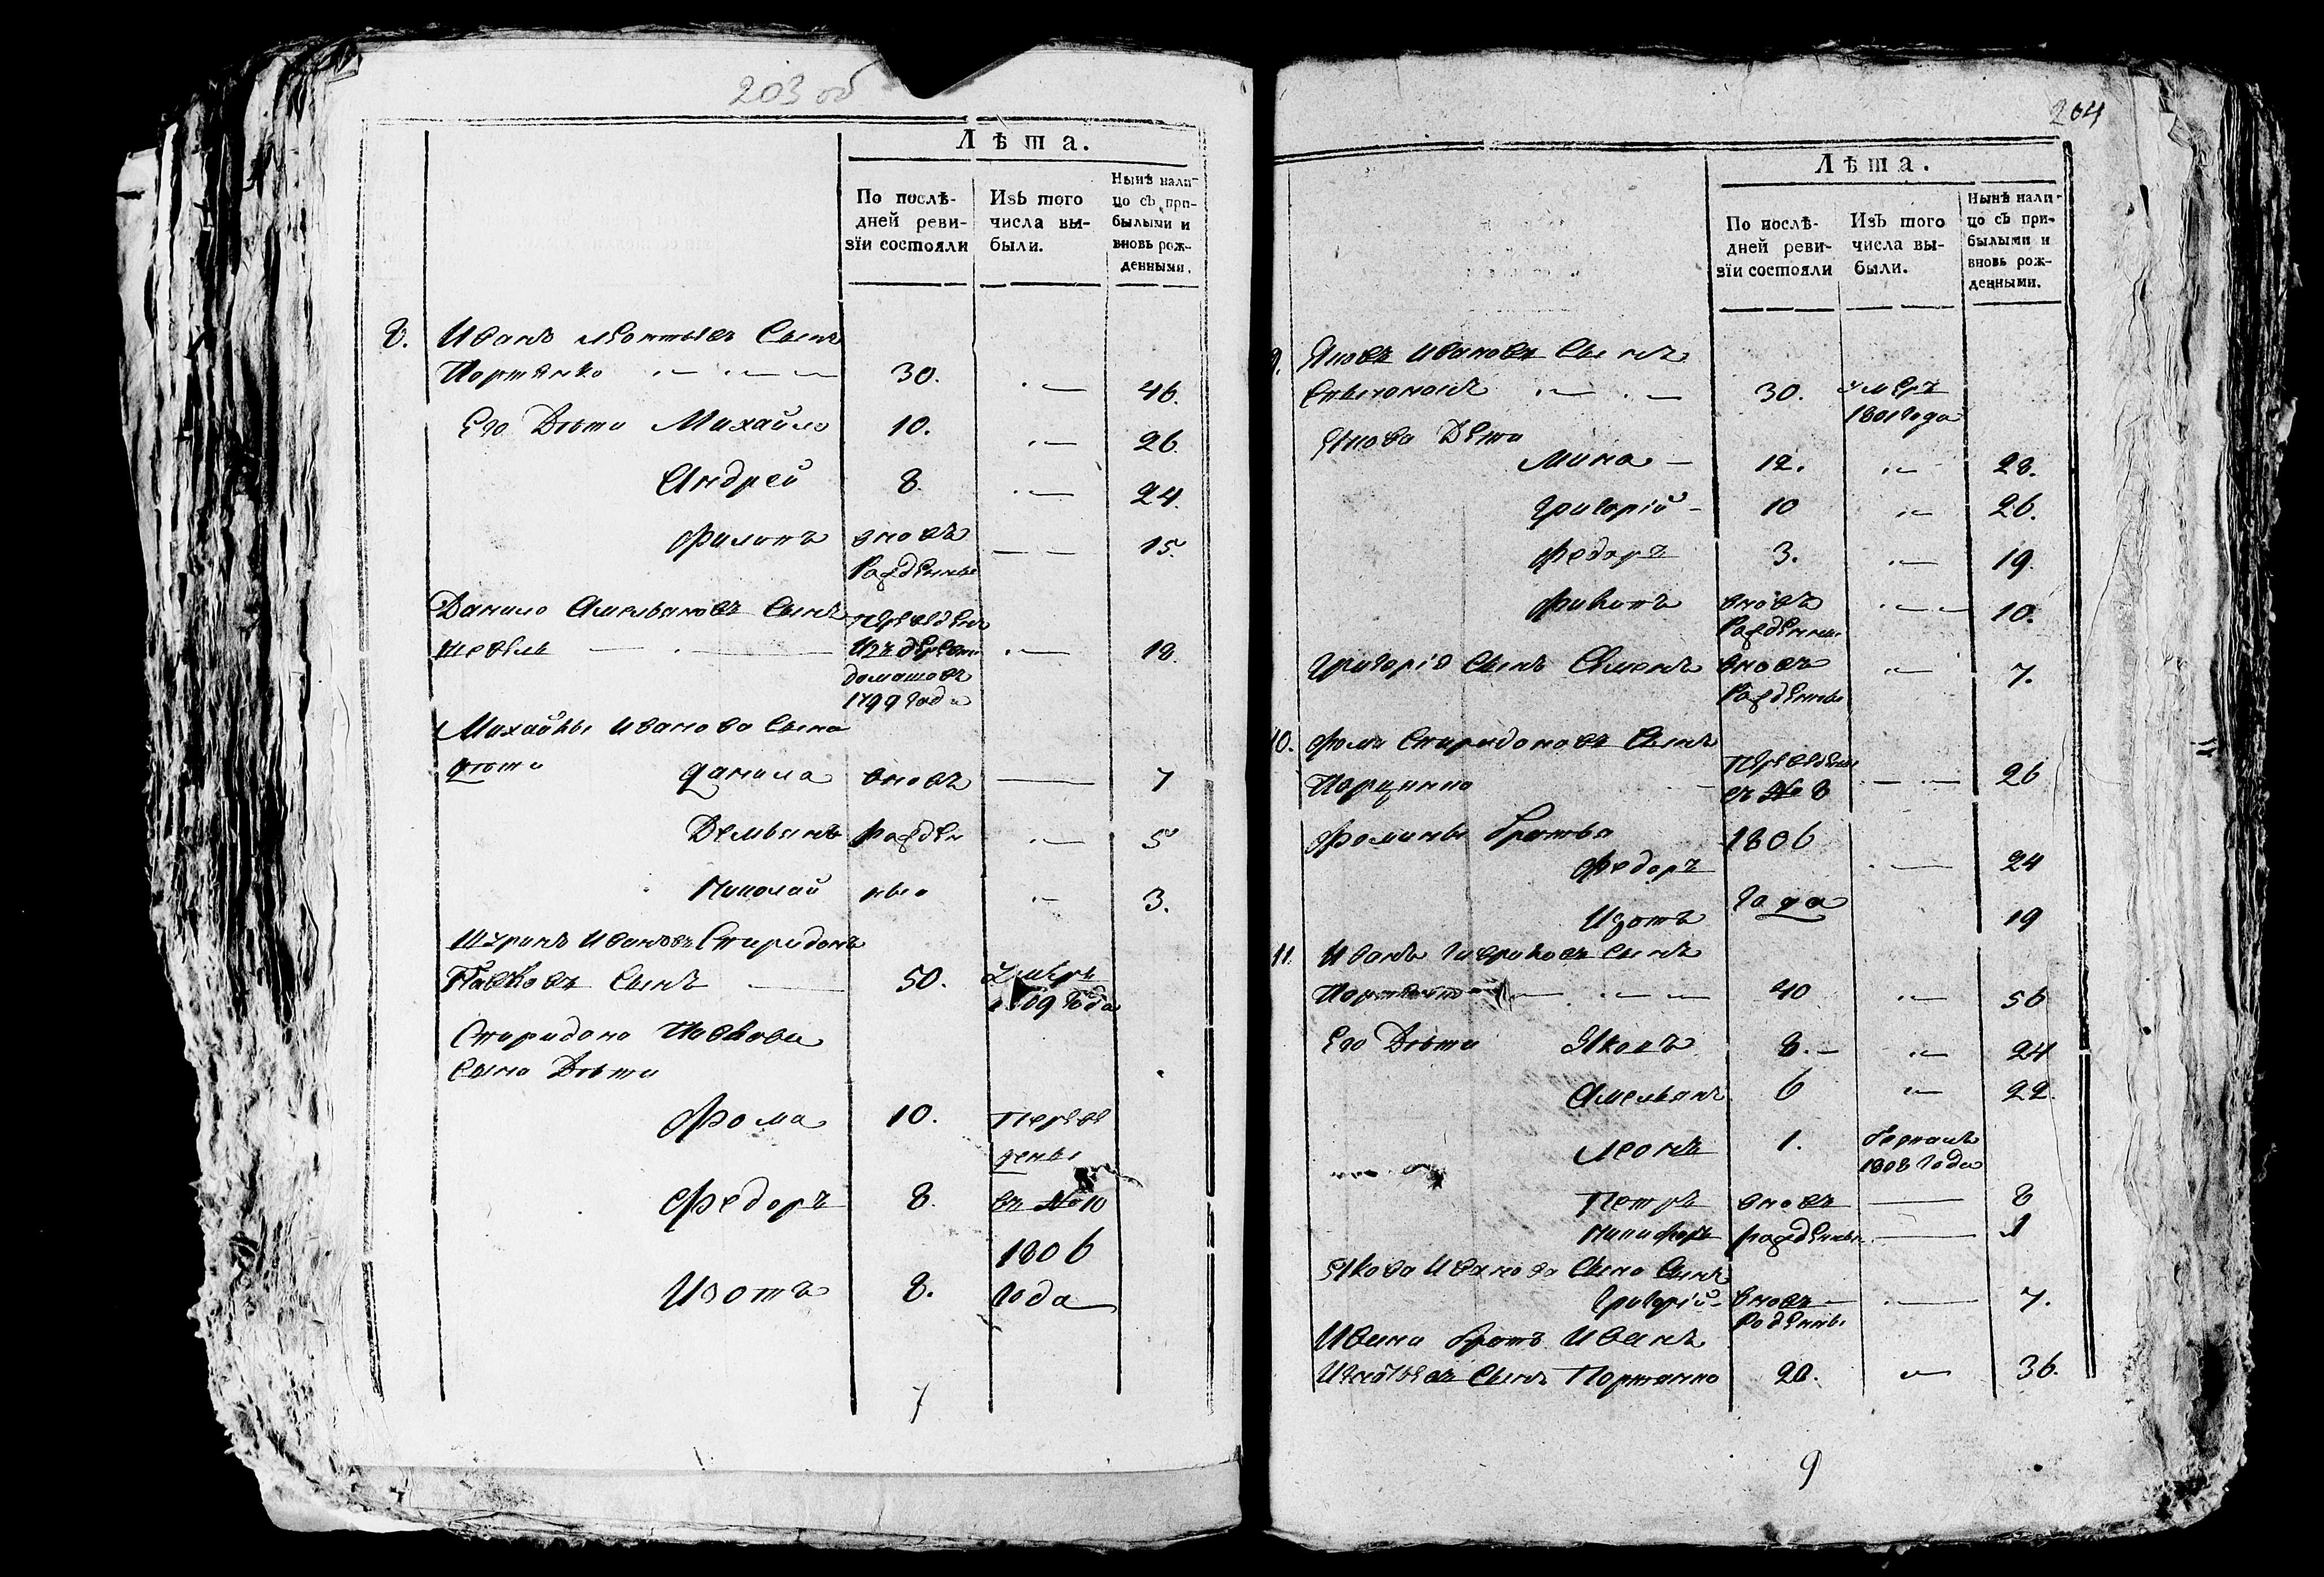 203 об
Лѣта.
По послѣ-
дней реви-
зіи состояли
Изъ того
числа вы-
были.
Нынѣ нали-
цо съ при-
былыми и
вновь рож-
денными.
8. Иванъ Леонтьевъ Сынъ
Портянко 30. 46.
Его Дѣти Михайло 10. 26.
Андрей 8. 24.
Филипъ вновь 15.
Рожденные
Данило Амельяновъ Сынъ переведенъ
Из деревни 18.
1799 года
Михайлы Иванова Сына
Дѣти Данила вновь 7
Демьянъ рожден 5
Николай ные 3.
Шуринъ Ивановъ Спиридонъ
Павловъ Сынъ 50. Умеръ
1809 года
Спиридона Павлова
Сына Дѣти
Фома 10. Переве
дены
Федоръ 8. въ № 10
1806
Изотъ 8. года
7
204
Лѣта.
По послѣ-
дней реви-
зіи состояли
Изъ того
числа вы-
были.
Нынѣ нали-
цо съ при-
былыми и
вновь рож-
денными.
9. Яковъ Ивановъ Сынъ
30. умеръ
1801 года
Якова Дети
Мина 12. 28.
Григорій 10 26.
Федоръ 3. 19.
Филипъ вновь 10.
Рожденные
Григорія Сынъ Семенъ вновь 7.
Рожденные
10. Фома Спиридоновъ Сынъ
Переведены
съ № 8 26
Фомины братья 1806
Федоръ 24
года
Изотъ 19
11. Иванъ Гавриловъ Сынъ
40 56
Его Дѣти Яковъ 8. 24
Амельянъ 6 22.
Леонъ 1.
1808 года
Петръ вновь 8
Никифоръ рожденные 1
Якова Иванова Сына Сынъ
Григорій вновь 7.
Рожденные
Ивана братъ Иванъ
Сынъ Портянко 20. 36.
9